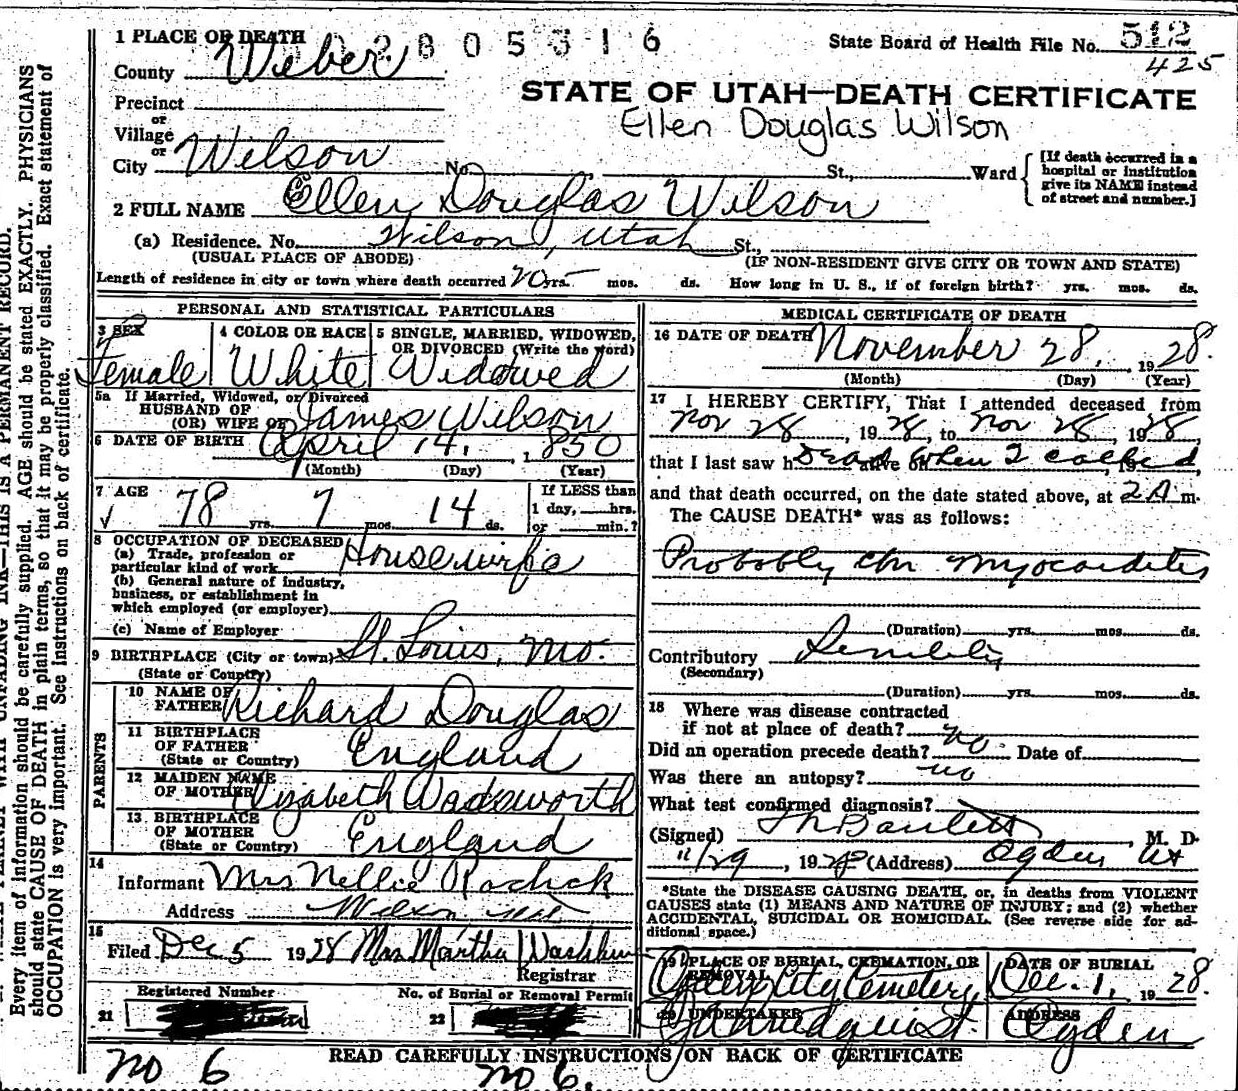 1 PLACE OF DEATH
2805316
State Board of Health File No. 512
425
County Weber
STATE OF UTAH—DEATH CERTIFICATE
Ellen Douglas Wilson
Precinct
or
Village
or
City Wilson No. St., Ward
[If death occurred in a hospital or institution give its NAME instead of street and number.]
2 FULL NAME Ellen Douglas Wilson
(a) Residence. No. Wilson, Utah St.,
(USUAL PLACE OF ABODE) (IF NON-RESIDENT GIVE CITY OR TOWN AND STATE)
Length of residence in city or town where death occurred 70 yrs. mos. ds. How long in U. S., if of foreign birth? yrs. mos. ds.
PERSONAL AND STATISTICAL PARTICULARS
3 SEX 4 COLOR OR RACE 5 SINGLE, MARRIED, WIDOWED, OR DIVORCED (Write the word)
Female White Widowed
5a If Married, Widowed, or Divorced
HUSBAND OF
(OR) WIFE OF James Wilson
6 DATE OF BIRTH April 14, 1850
(Month) (Day) (Year)
7 AGE 78 yrs. 7 mos. 14 ds.
If LESS than
1 day, hrs.
or min.?
8 OCCUPATION OF DECEASED
(a) Trade, profession or
particular kind of work Housewife
(b) General nature of industry,
business, or establishment in
which employed (or employer)
(c) Name of Employer
9 BIRTHPLACE (City or town) St. Louis, Mo.
(State or Country)
PARENTS
10 NAME OF
FATHER Richard Douglas
11 BIRTHPLACE
OF FATHER England
(State or Country)
12 MAIDEN NAME
OF MOTHER Elizabeth Wadsworth
13 BIRTHPLACE
OF MOTHER England
(State or Country)
14
Informant Mrs Nellie
Address Wilson
15
Filed Dec 5 1928 Mrs Martha Washburn
Registrar
Registered Number No. of Burial or Removal Permit
21 22
MEDICAL CERTIFICATE OF DEATH
16 DATE OF DEATH November 28, 1928.
(Month) (Day) (Year)
17 I HEREBY CERTIFY, That I attended deceased from
Nov 28, 1928, to Nov 28, 1928,
that I last saw h Dead alive on When I called, 19
and that death occurred, on the date stated above, at 2 A m.
The CAUSE DEATH* was as follows:
Probably chr myocarditis
(Duration) yrs. mos. ds.
Contributory Senility
(Secondary)
(Duration) yrs. mos. ds.
18 Where was disease contracted
if not at place of death?
Did an operation precede death? no. Date of
Was there an autopsy? no
What test confirmed diagnosis?
(Signed) Bartlett M. D.
11/29, 1928 (Address) Ogden Ut
*State the DISEASE CAUSING DEATH, or, in deaths from VIOLENT
CAUSES state (1) MEANS AND NATURE OF INJURY; and (2) whether
ACCIDENTAL, SUICIDAL OR HOMICIDAL. (See reverse side for ad-
ditional space.)
19 PLACE OF BURIAL, CREMATION, OR REMOVAL DATE OF BURIAL
Ogden City Cemetery Dec. 1, 1928.
20 UNDERTAKER ADDRESS
Ogden
READ CAREFULLY INSTRUCTIONS ON BACK OF CERTIFICATE
no 6 no 6.
Every item of information should be carefully supplied. AGE should be stated EXACTLY. PHYSICIANS
should state CAUSE OF DEATH in plain terms, so that it may be properly classified. Exact statement of
OCCUPATION is very important. See instructions on back of certificate.